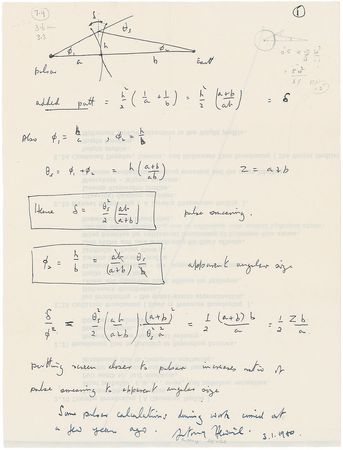 7-4
3.6
3.3
①
δ
θs
φ1
h
φ2
a
b
pulsar
Earth
added path = h²/2 (1/a + 1/b) = h²/2 ((a+b)/ab) = δ
Also φ1 = h/a , φ2 = h/b
θs = φ1 + φ2 = h ((a+b)/ab)
Z = a+b
Hence δ = θs²/2 (ab/(a+b))
pulse smearing.
φ2 = h/b = ab/(a+b) · θs/b
apparent angular size
δ/φ² = θs²/2 (ab/(a+b)) · (a+b)²/(θs² a²) = 1/2 (a+b)b/a = 1/2 Zb/a
putting screen closer to pulsar increases ratio of
pulse smearing to apparent angular size
Some pulsar calculations during work carried out
a few years ago. Antony Hewish. 3.1.1980.